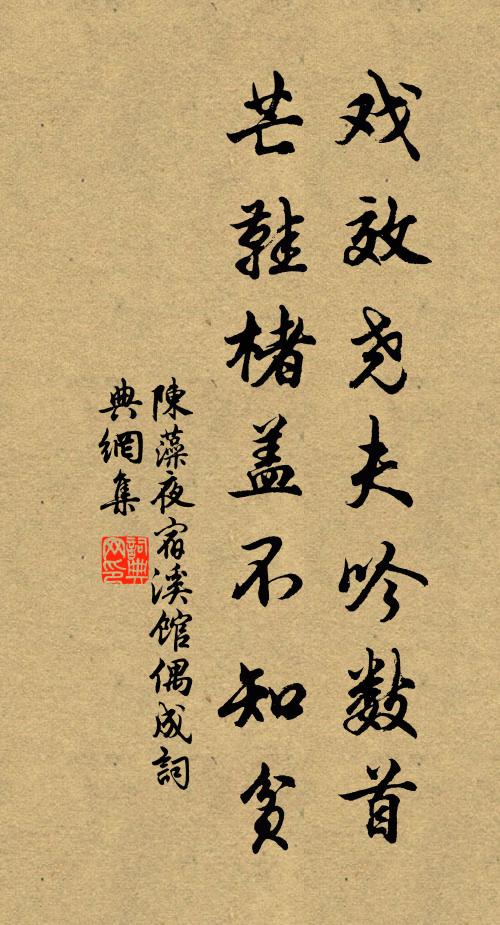 戏效尧夫吟数首
芒鞋楮盖不知贫
陳藻夜宿溪馆偶成詞
典網集
詞典网印